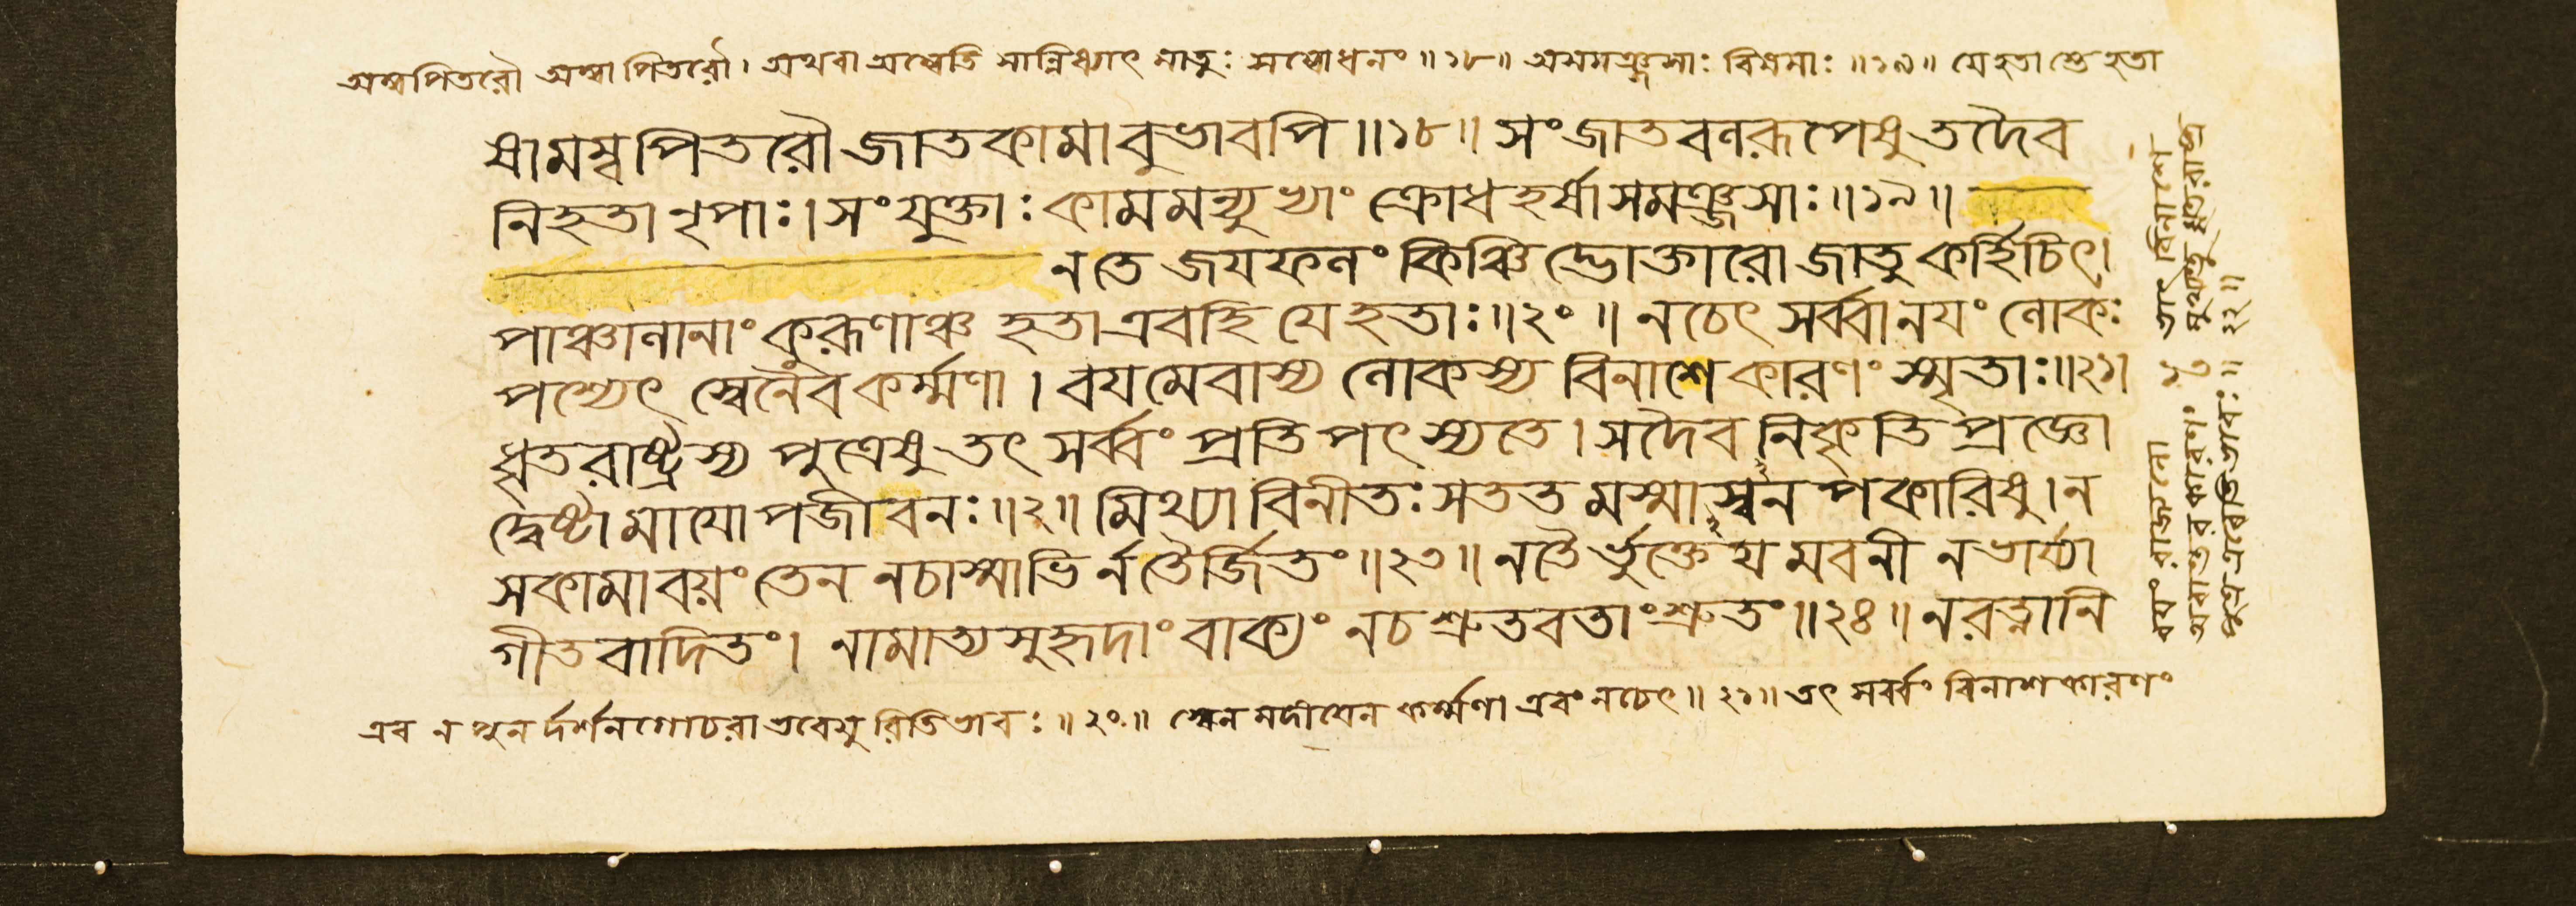 অম্বপিতরৌ অম্বা পিতরৌ। অথবা অম্বেতি সান্নিধ্যাৎ মাতুঃ সম্বোধনং॥১৮॥ অসমঞ্জসাঃ বিষমাঃ॥১৯॥ যে হতা স্তে হতা
ষামম্ব পিতরৌ জাতকামাবুভাবপি॥১৮॥ সংজাতবলরূপেষু তদৈব
নিহতা নৃপাঃ। সংযুক্তাঃ কামমন্যুভ্যাং ক্রোধহর্ষাসমঞ্জসাঃ॥১৯॥
ন তে জয়ফলং কিঞ্চিদ্ভোক্তারো জাতু কর্হিচিৎ।
পাঞ্চালানাং কুরূণাঞ্চ হতা এব হি যে হতাঃ॥২০॥ ন চেৎ সর্ব্বানয়ং লোকঃ
পশ্যেৎ স্বেনৈব কর্ম্মণা। বয়মেবাস্য লোকস্য বিনাশে কারণং স্মৃতাঃ॥২১।
ধৃতরাষ্ট্রস্য পুত্রেষু তৎ সর্ব্বং প্রতিপৎস্যতে। সদৈব নিকৃতিপ্রজ্ঞো
দ্বেষ্টা মায়োপজীবনঃ॥২॥ মিথ্যা বিনীতঃ সততমস্মাস্বনপকারিষু। ন
সকামা বয়ং তেন নচাস্মাভির্ন তৈর্জিতং॥২৩॥ ন তৈর্ভুক্তেয়মবনী ন ভার্য্যা
গীতবাদিতং। নামাত্যসুহৃদাং বাক্যং নচ শ্রুতবতাং শ্রুতং॥২৪॥ ন রত্নানি
এব ন পুনর্দর্শনগোচরা ভবেয়ুরিতিভাবঃ॥২০॥ স্বেন মদীয়েন কর্ম্মণা এবং নচেৎ॥২১॥ তৎ সর্ব্বং বিনাশকারণং
বয়ং রাজানো
অবান্তর কারণং
পুত্র এবেতিভাবঃ॥ ২২॥